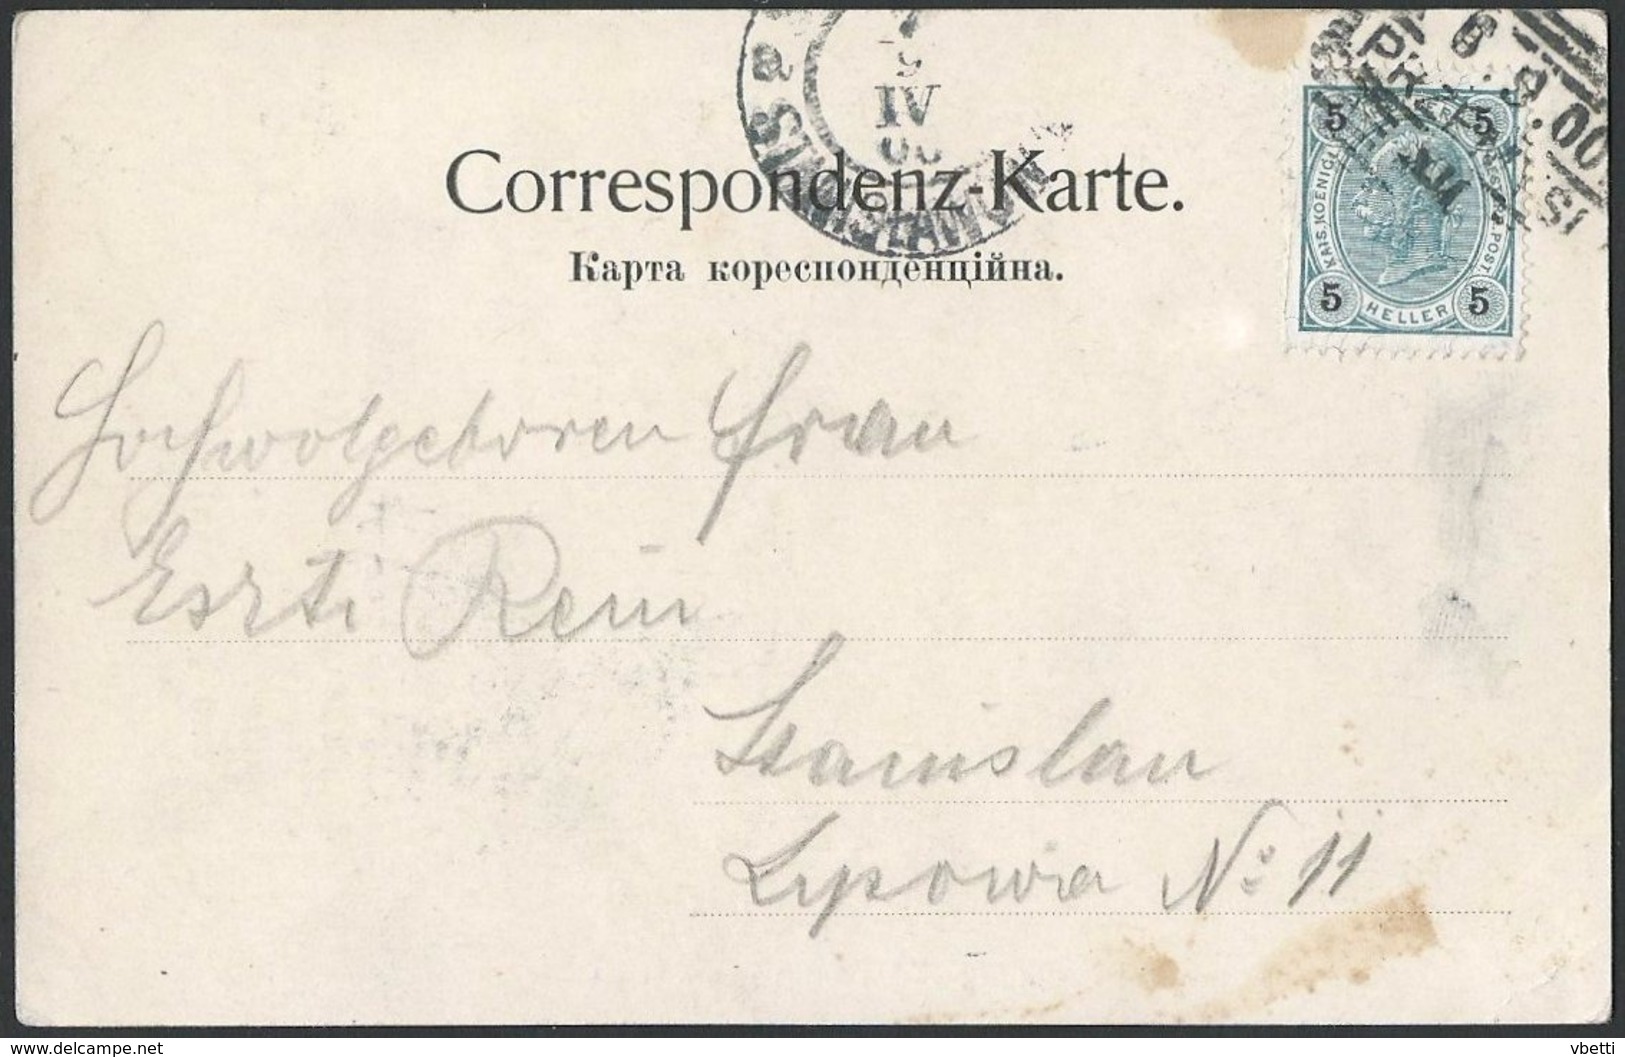 Correspondenz-Karte.
Карта кореспонденційна.
IV
5 5
KAIS. KOENIGL.
POST.
5 HELLER 5
Hochwolgeboren Frau
Eszti Rein
Stanislau
Lypowa No 11
delcampe.net
vbetti